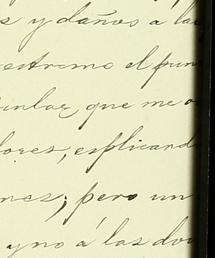 s y daños a la
estremo el pun
cular, que me o
lores, esplicand
nes; pero un
y no á las do